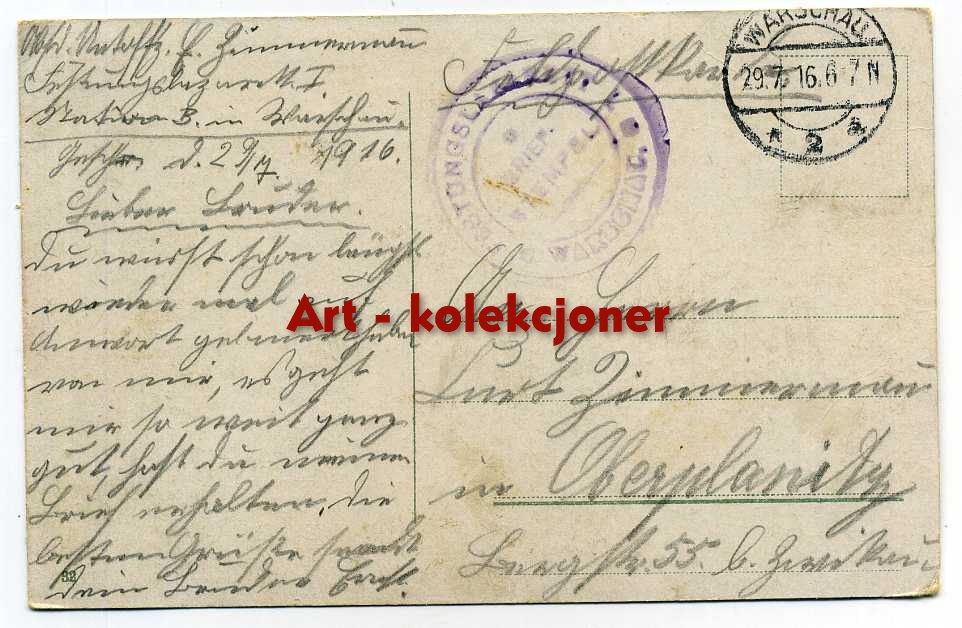 Zimmermann
Festungslazarett I.
Station B. in Warschau.
Geschr. d. 29/7 1916.
Lieber Bruder.
du wirst schon längst
wieder mal auf
Antwort gewartet haben
von mir, es geht
mir so weit ganz
gut, hast du meinen
Brief erhalten, die
besten Grüße sendet
dein Bruder
32
Feldpostkarte
WARSCHAU
29.7.16.6-7N
2
BRIEF-
STEMPEL
WARSCHAU.
Art - kolekcjoner
An Herrn
Curt Zimmermann
in Oberplanitz
Bergstr. 55. b. Zwickau